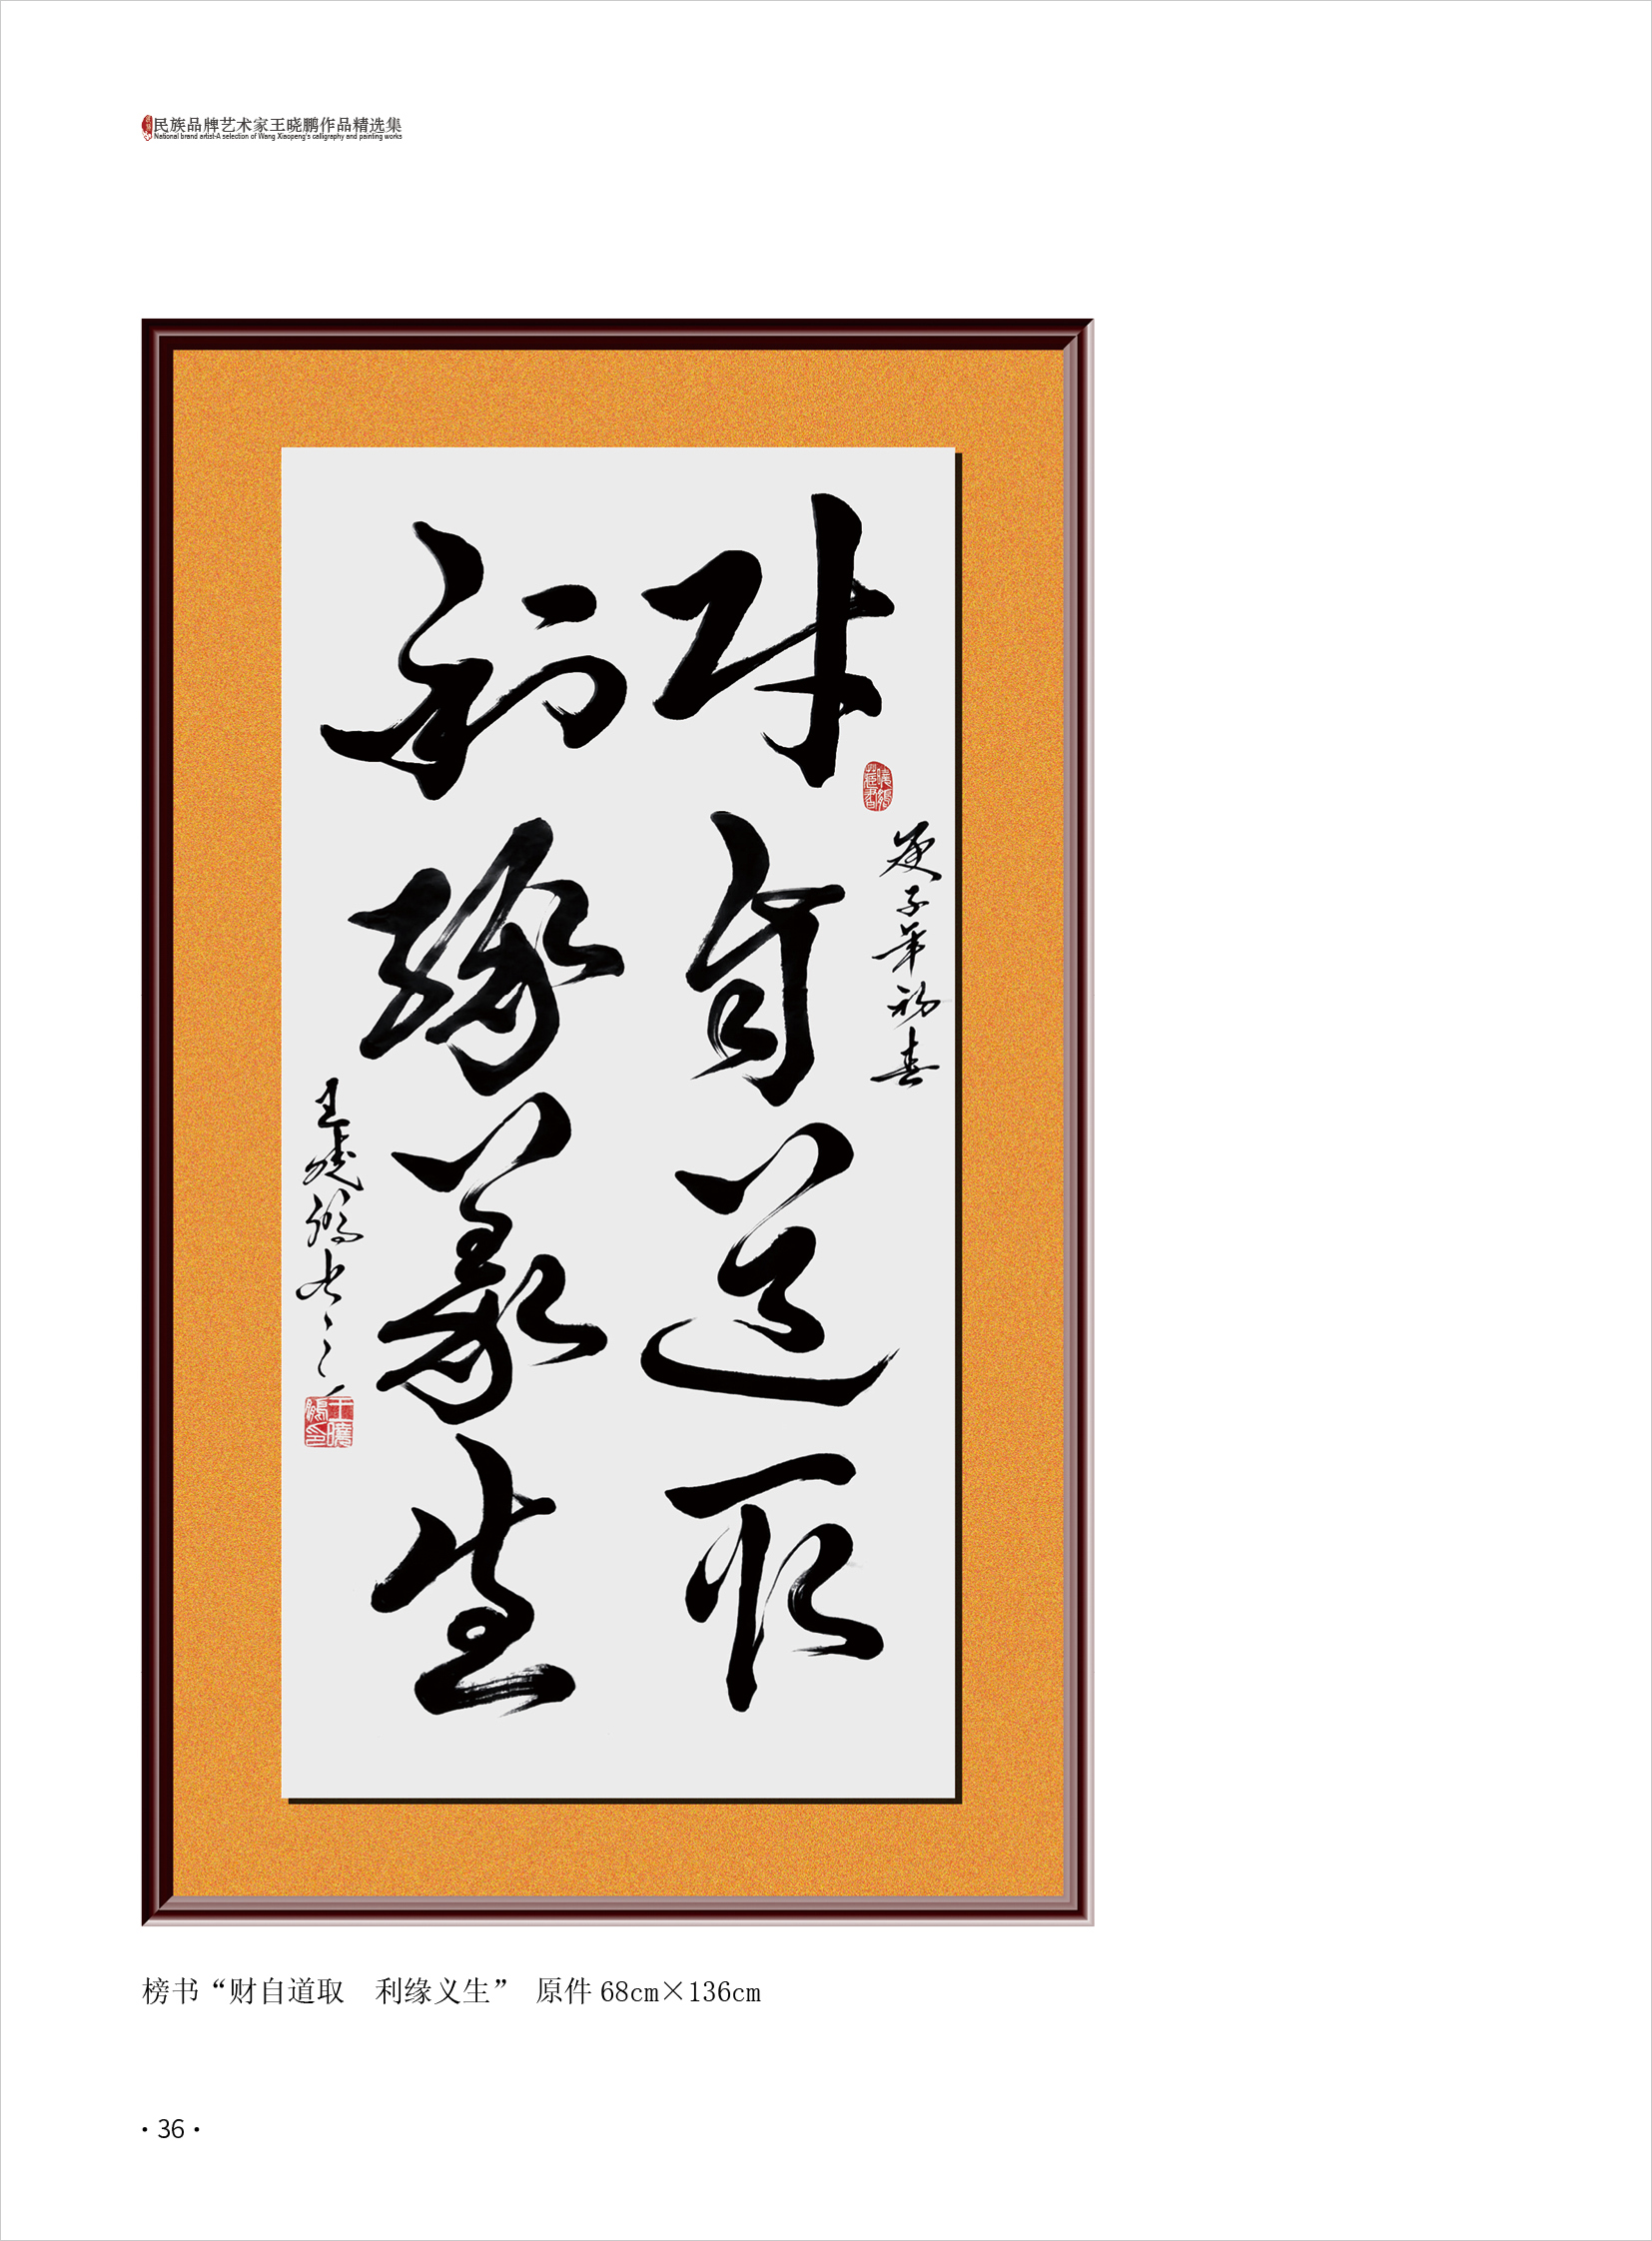 民族品牌艺术家王晓鹏作品精选集
National brand artist-A selection of Wang Xiaopeng's calligraphy and painting works
庚子年初春
财自道取
利缘義生
王晓鹏书
王曉鵬印
榜书“财自道取　利缘义生” 原件 68cm×136cm
·36·